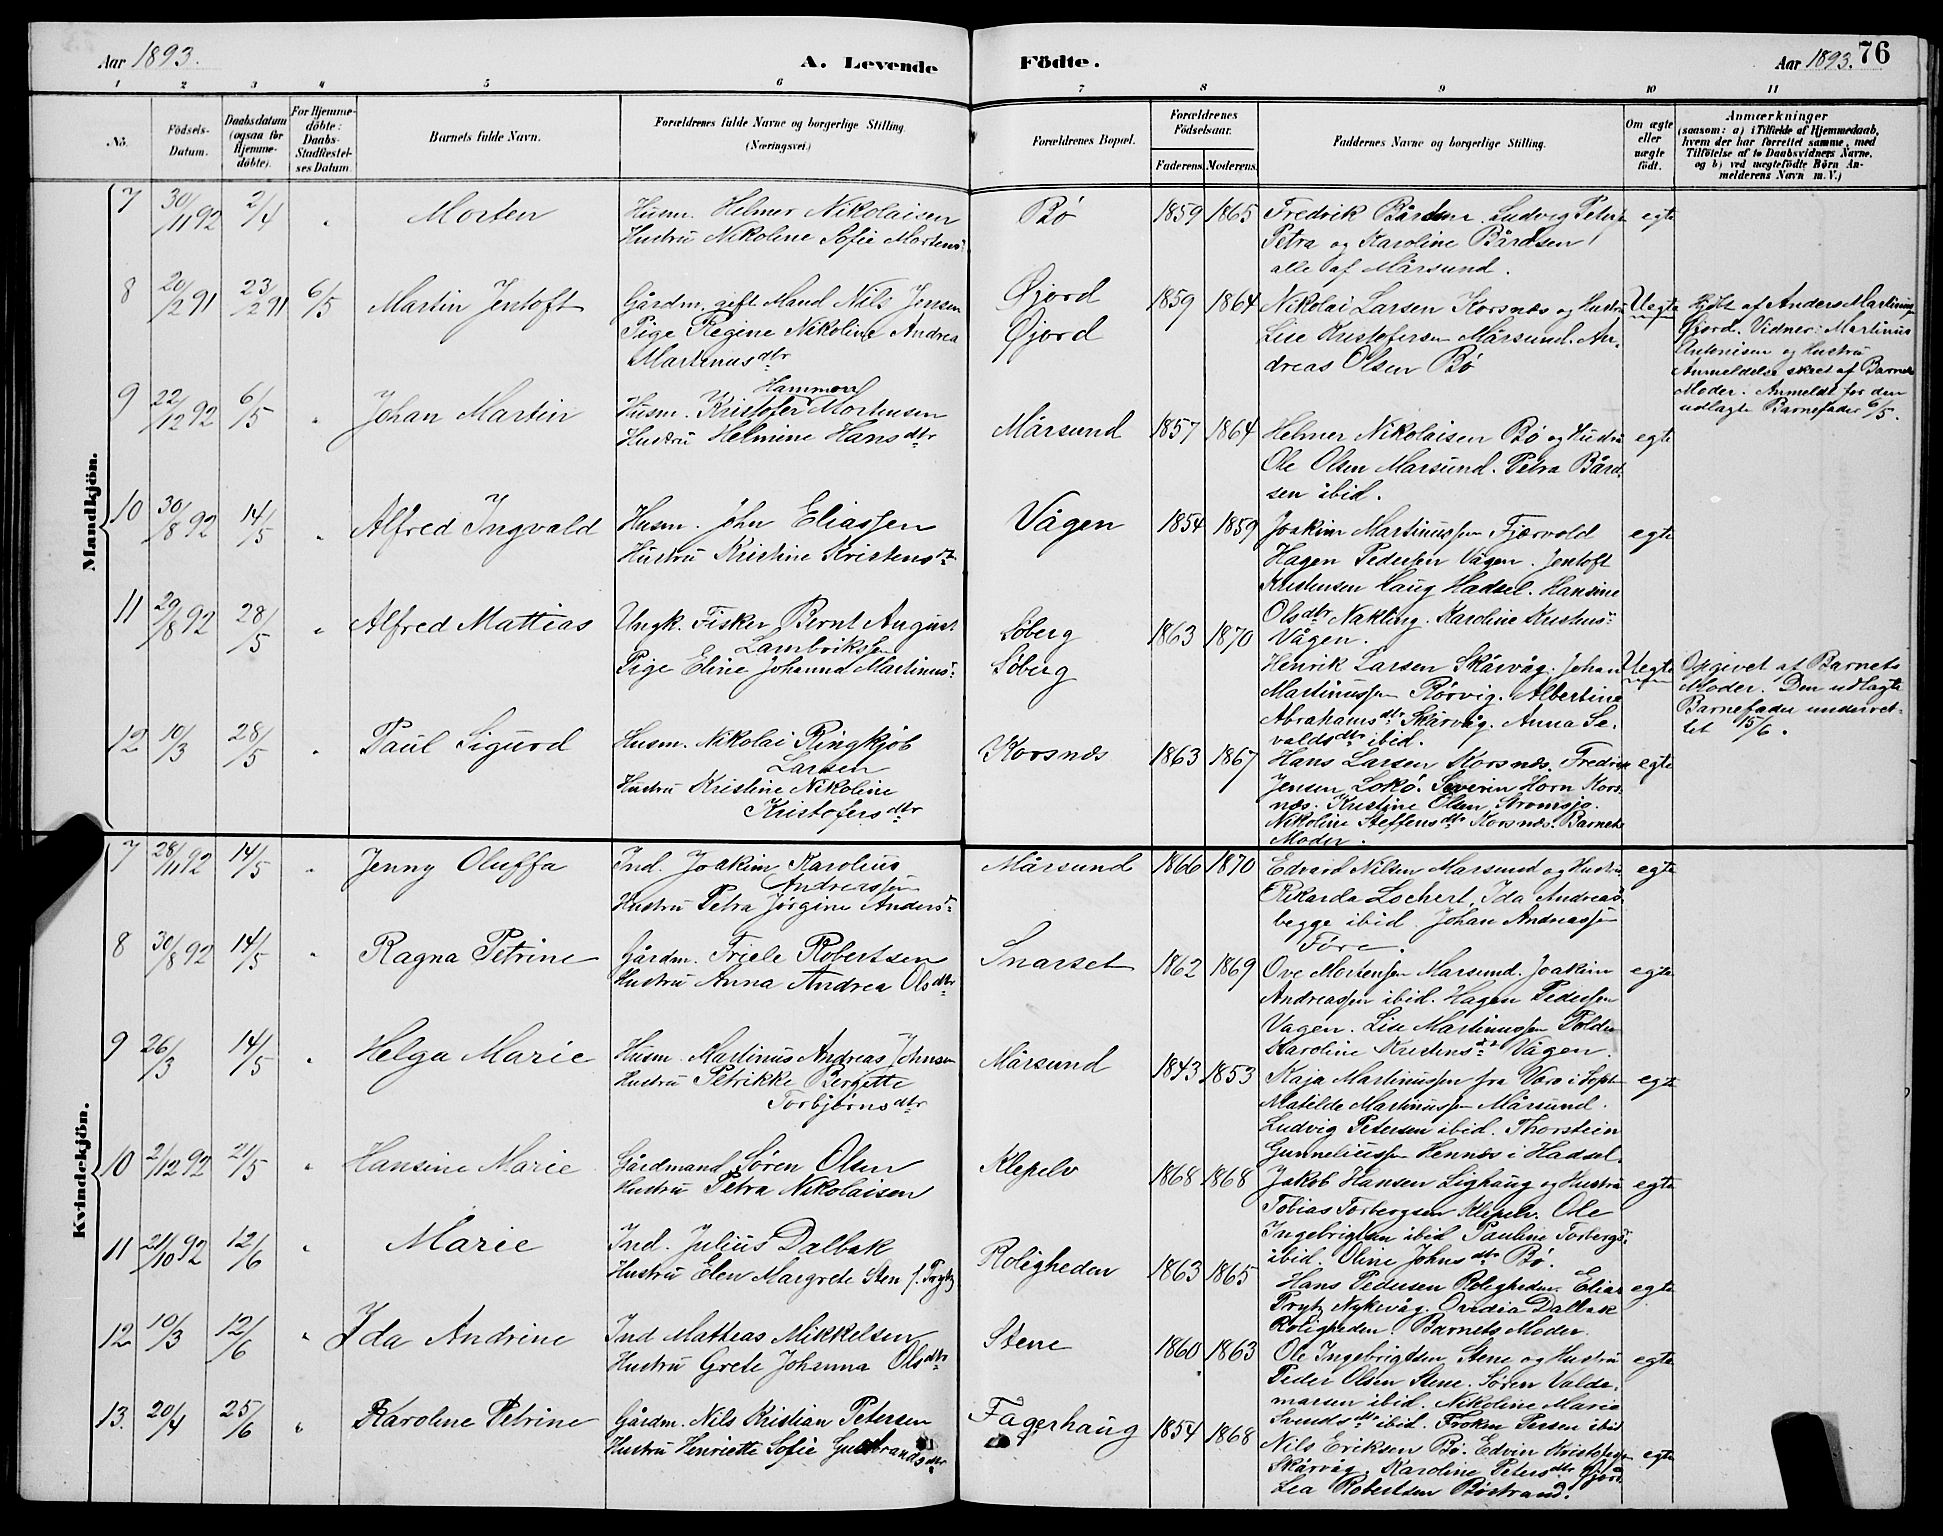 Aar 1893. A. Levende Födte. Aar 1893. 76
1 2 3 4 5 6 7 8 9 10 11
No.
Födsels-Datum.
Daabsdatum (ogsaa for Hjemme-döbte).
For Hjemme-döbte: Daabs-Stadfæstel-ses Datum
Barnets fulde Navn.
Forældrenes fulde Navne og borgerlige Stilling. (Næringsvei.)
Forældrenes Bopæl.
Forældrenes Födselsaar.
Faderens. Moderens.
Faddernes Navne og borgerlige Stilling.
Om ægte eller uægte født.
Anmærkninger
(saasom: a) i Tilfælde af Hjemmedaab,
hvem der har forrettet samme, med
Tilföielse af to Daabsvidners Navne,
og b) ved uægtefödte Börn An-
melderens Navn m. V.)
Mandkjön.
7 30/11 92 2/4 " Morten
Husm. Helmer Nikolaisen
Hustru Nikoline Sofie Mortens:
Bø 1859 1865
Fredrik Bårdsen. Ludvig Peters:
Petra og Karoline Bårdsen
alle af Mårsund.
egte
8 20/2 91 23/2 91 6/5 Martin Jentoft
Gårdm. gift Mand Nils Jensen
Pige Regine Nikoline Andrea
Martinusdtr
Øjord
Øjord
1859 1864
Nikolai Larsen Korsnæs og Hustru
Lise Kristofersen Mårsund. An-
dreas Olsen Bø
Uegte
Hjdbt af Anders Martinus
Øjord. Vidner: Martinus
Antonisen og Hustru
Anmeldelse skeet af Barnets
Moder. Anmeldt for den
udlagte Barnefader 6/5.
9 22/12 92 6/5 " Johan Martin
Hammer
Husm. Kristofer Mortensen
Hustru Helmine Hansdtr
Mårsund 1857 1864
Helmer Nikolaisen Bø og Hustru
Ole Olsen Marsund. Petra Bård
sen ibid.
egte
10 30/8 92 14/5 " Alfred Ingvald
Husm. John Eliassen
Hustru Kristine Kristensdtr
Vågen 1854 1859
Joakim Martinussen Fjærvold
Hagen Pedersen Vågen. Jentoft
Kristensen Haug Hadsel. Hansine
Olsdtr Nakling. Karoline Kristens:
Vågen.
egte
11 29/8 92 28/5 " Alfred Mattias
Ungk. Fisker Bernt August
Lambrikssen
Pige Eline Johanna Martinus:
Søberg
Søberg
1863 1870
Henrik Larsen Skårvåg. Johan
Martinussen Rørvig. Albertine
Abrahamsdtr Skårvåg. Anna Se-
valdsdtr ibid.
Uegte
Opgivet af Barnets
Moder. Den udlagte
Barnefader underret-
tet 15/6.
12 10/3 28/5 " Paul Sigurd
Husm. Nikolai Ringkjøb
Larsen
Hustru Kristine Nikoline
Kristofersdtr
Korsnæs 1863 1867
Hans Larsen Korsnæs. Fredrik
Jensen Lokø. Severin Horn Kors
næs. Kristine Olsen Strømsjø.
Nikoline Steffensdtr Korsnæs. Barnets
Moder.
egte
Kvindekjön.
7 28/11 92 14/5 " Jenny Oluffa
Ind. Joakim Karolius
Andreassen
Hustru Petra Jørgine Anders:
Mårsund 1866 1870
Edvard Nilsen Marsund og Hustru
Rikarda Lochert, Ida Andreas
begge ibid Johan Andreassen
Føre.
egte
8 30/8 92 14/5 " Ragna Petrine
Gårdm. Friele Robertsen
Hustru Anna Andrea Olsdtr
Snarset 1862 1869
Ove Mortensen Marsund. Joakim
Andreassen ibid. Hagen Pedersen
Vagen. Lise Martinussen Polden
Karoline Kristensdtr Vågen.
egte
9 26/3 14/5 " Helga Marie
Husm. Martinus Andreas Johnsen
Hustru Petrikke Bergitte
Torbjørnsdtr
Mårsund 1843 1853
Kaja Martinussen fra Værø i Lofot
Matilde Martinussen Mårsund.
Ludvig Petersen ibid. Thorstein
Gunneliussen Hennes i Hadsel.
egte
10 2/12 92 21/5 " Hansine Marie
Gårdmand Søren Olsen
Hustru Petra Nikolaisen
Klepelv 1868 1868
Jakob Hansen Lighaug og Hustru
Tobias Torbergsen Klepelv. Ole
Ingebrigtsen ibid Pauline Torbergs:
ibid. Oline Johnsdtr Bø.
egte
11 21/10 92 12/6 " Marie
Ind. Julius Dalbak
Hustru Elen Margrete Sten f. Prytz
Roligheden 1863 1865
Hans Pedersen Roligheden. Elias
Prytz Nykvåg. Ovidia Dalbak
Roligheden. Barnets Moder.
egte
12 10/3 12/6 " Ida Andrine
Ind Mathias Mikkelsen
Hustru Grete Johanna Olsdtr
Stene 1860 1863
Ole Ingebrigtsen Stene og Hustru
Peder Olsen Stene. Søren Valde-
marsen ibid. Nikoline Maria
Svendsdtr ibid. Frøken Persen ibid
egte
13. 20/4 25/6 " Karoline Petrine
Gårdm. Nils Kristian Petersen
Hustru Henriette Sofie Gulbrandsdtr
Fagerhaug 1854 1868
Nils Eriksen Bø. Edvin Kristofersen
Skårvåg. Karoline Petersdtr Øjord
Lea Robertsen Bøstrand.
egte